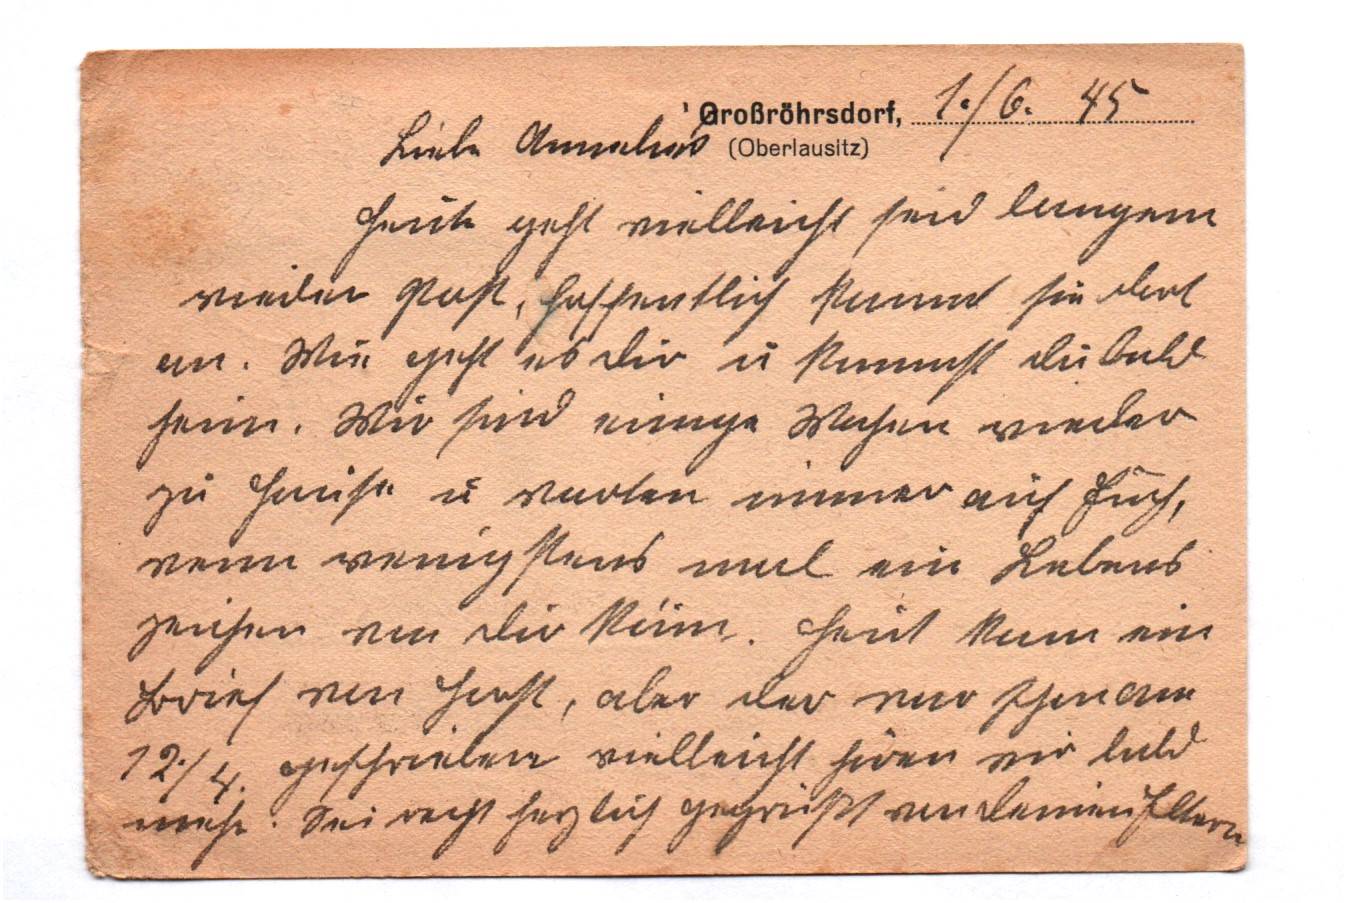 Großröhrsdorf, 1./6. 45
(Oberlausitz)
Liebe Annelies
Heute geht vielleicht seid langem
wieder Post, hoffentlich kommt sie dort
an. Wie geht es dir u kommst du bald
heim. Wir sind einige Wochen wieder
zu Hause u warten immer auf Euch,
wenn wenigstens mal ein Lebens
zeichen von dir käm. Heut kam ein
Brief von Horst, aber der war schon am
12./4. geschrieben vielleicht hören wir bald
mehr. Sei recht herzlich gegrüßt von deinen Eltern